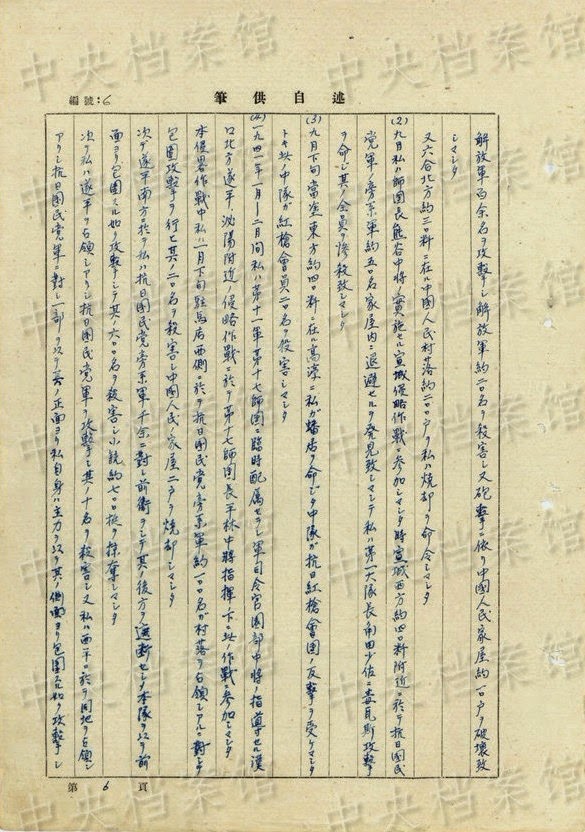 筆供自述
編號:6
解放軍百余名ヲ攻撃シ解放軍約二〇名ヲ殺害シ又砲撃ニ依リ中國人民家屋約一〇戸ヲ破壊致
シマシタ
又六合北方約二〇粁ニ在ル中國人民村落約二〇〇戸ヲ私ハ焼却ヲ命令シマシタ
(2)九月私ハ師團長熊谷中将ノ實施セル宣城侵略作戦ニ参加シマシタ時宣城西方約四〇粁附近ニ於テ抗日國民
党軍ノ旁系軍約五〇名家屋内ニ退避セルヲ発見致シマシテ私ハ第一大隊長角田少佐ニ毒瓦斯攻撃
ヲ命ジ其ノ全員ヲ惨殺致シマシタ
(3)九月下旬當塗東方約四〇粁ニ在ル高淳ニ私ガ蟠居ヲ命ジタ中隊ガ抗日紅槍會團ノ反撃ヲ受ケマシタ
トキ此ノ中隊ガ紅槍會員二〇名ヲ殺害シマシタ
(4)一九四一年一月ー二月間私ハ第十一軍第十七師團ニ臨時配属セラレ軍司令官園部中将ノ指導セル漢
口北方遂平、泌陽附近ノ侵略作戦ニ於テ第十七師團長平林中将指揮下ニ此ノ作戦ニ参加シマシタ
本侵畧作戦中私ハ一月下旬駐馬店西側ニ於テ抗日國民党旁系軍約一〇〇名ガ村落ヲ占領シアルニ對シ
包囲攻撃ヲ行ヒ其ノ二〇名ヲ殺害シ中國人民ノ家屋二戸ヲ焼却シマシタ
次デ遂平南方ニ於テ私ハ抗日國民党旁系軍千余ニ對シ前衛ヲシテ其ノ後方ヲ遮断セシメ本隊ヲ以テ前
面ヨリ包囲スル如ク攻撃シテ其ノ六〇〇名ヲ殺害シ小銃約七〇〇挺ヲ掠奪シマシタ
次デ私ハ遂平ヲ占領シアリシ抗日國民党軍ヲ攻撃シ其ノ十名ヲ殺害シ又私ハ西平ニ於テ同地ヲ占領シ
アリシ抗日國民党軍ニ對シ一部ヲ以テ其ノ正面ヨリ私自身ハ主力ヲ以テ其ノ側面ヨリ包囲スル如ク攻撃シ
第 6 頁
中央档案馆